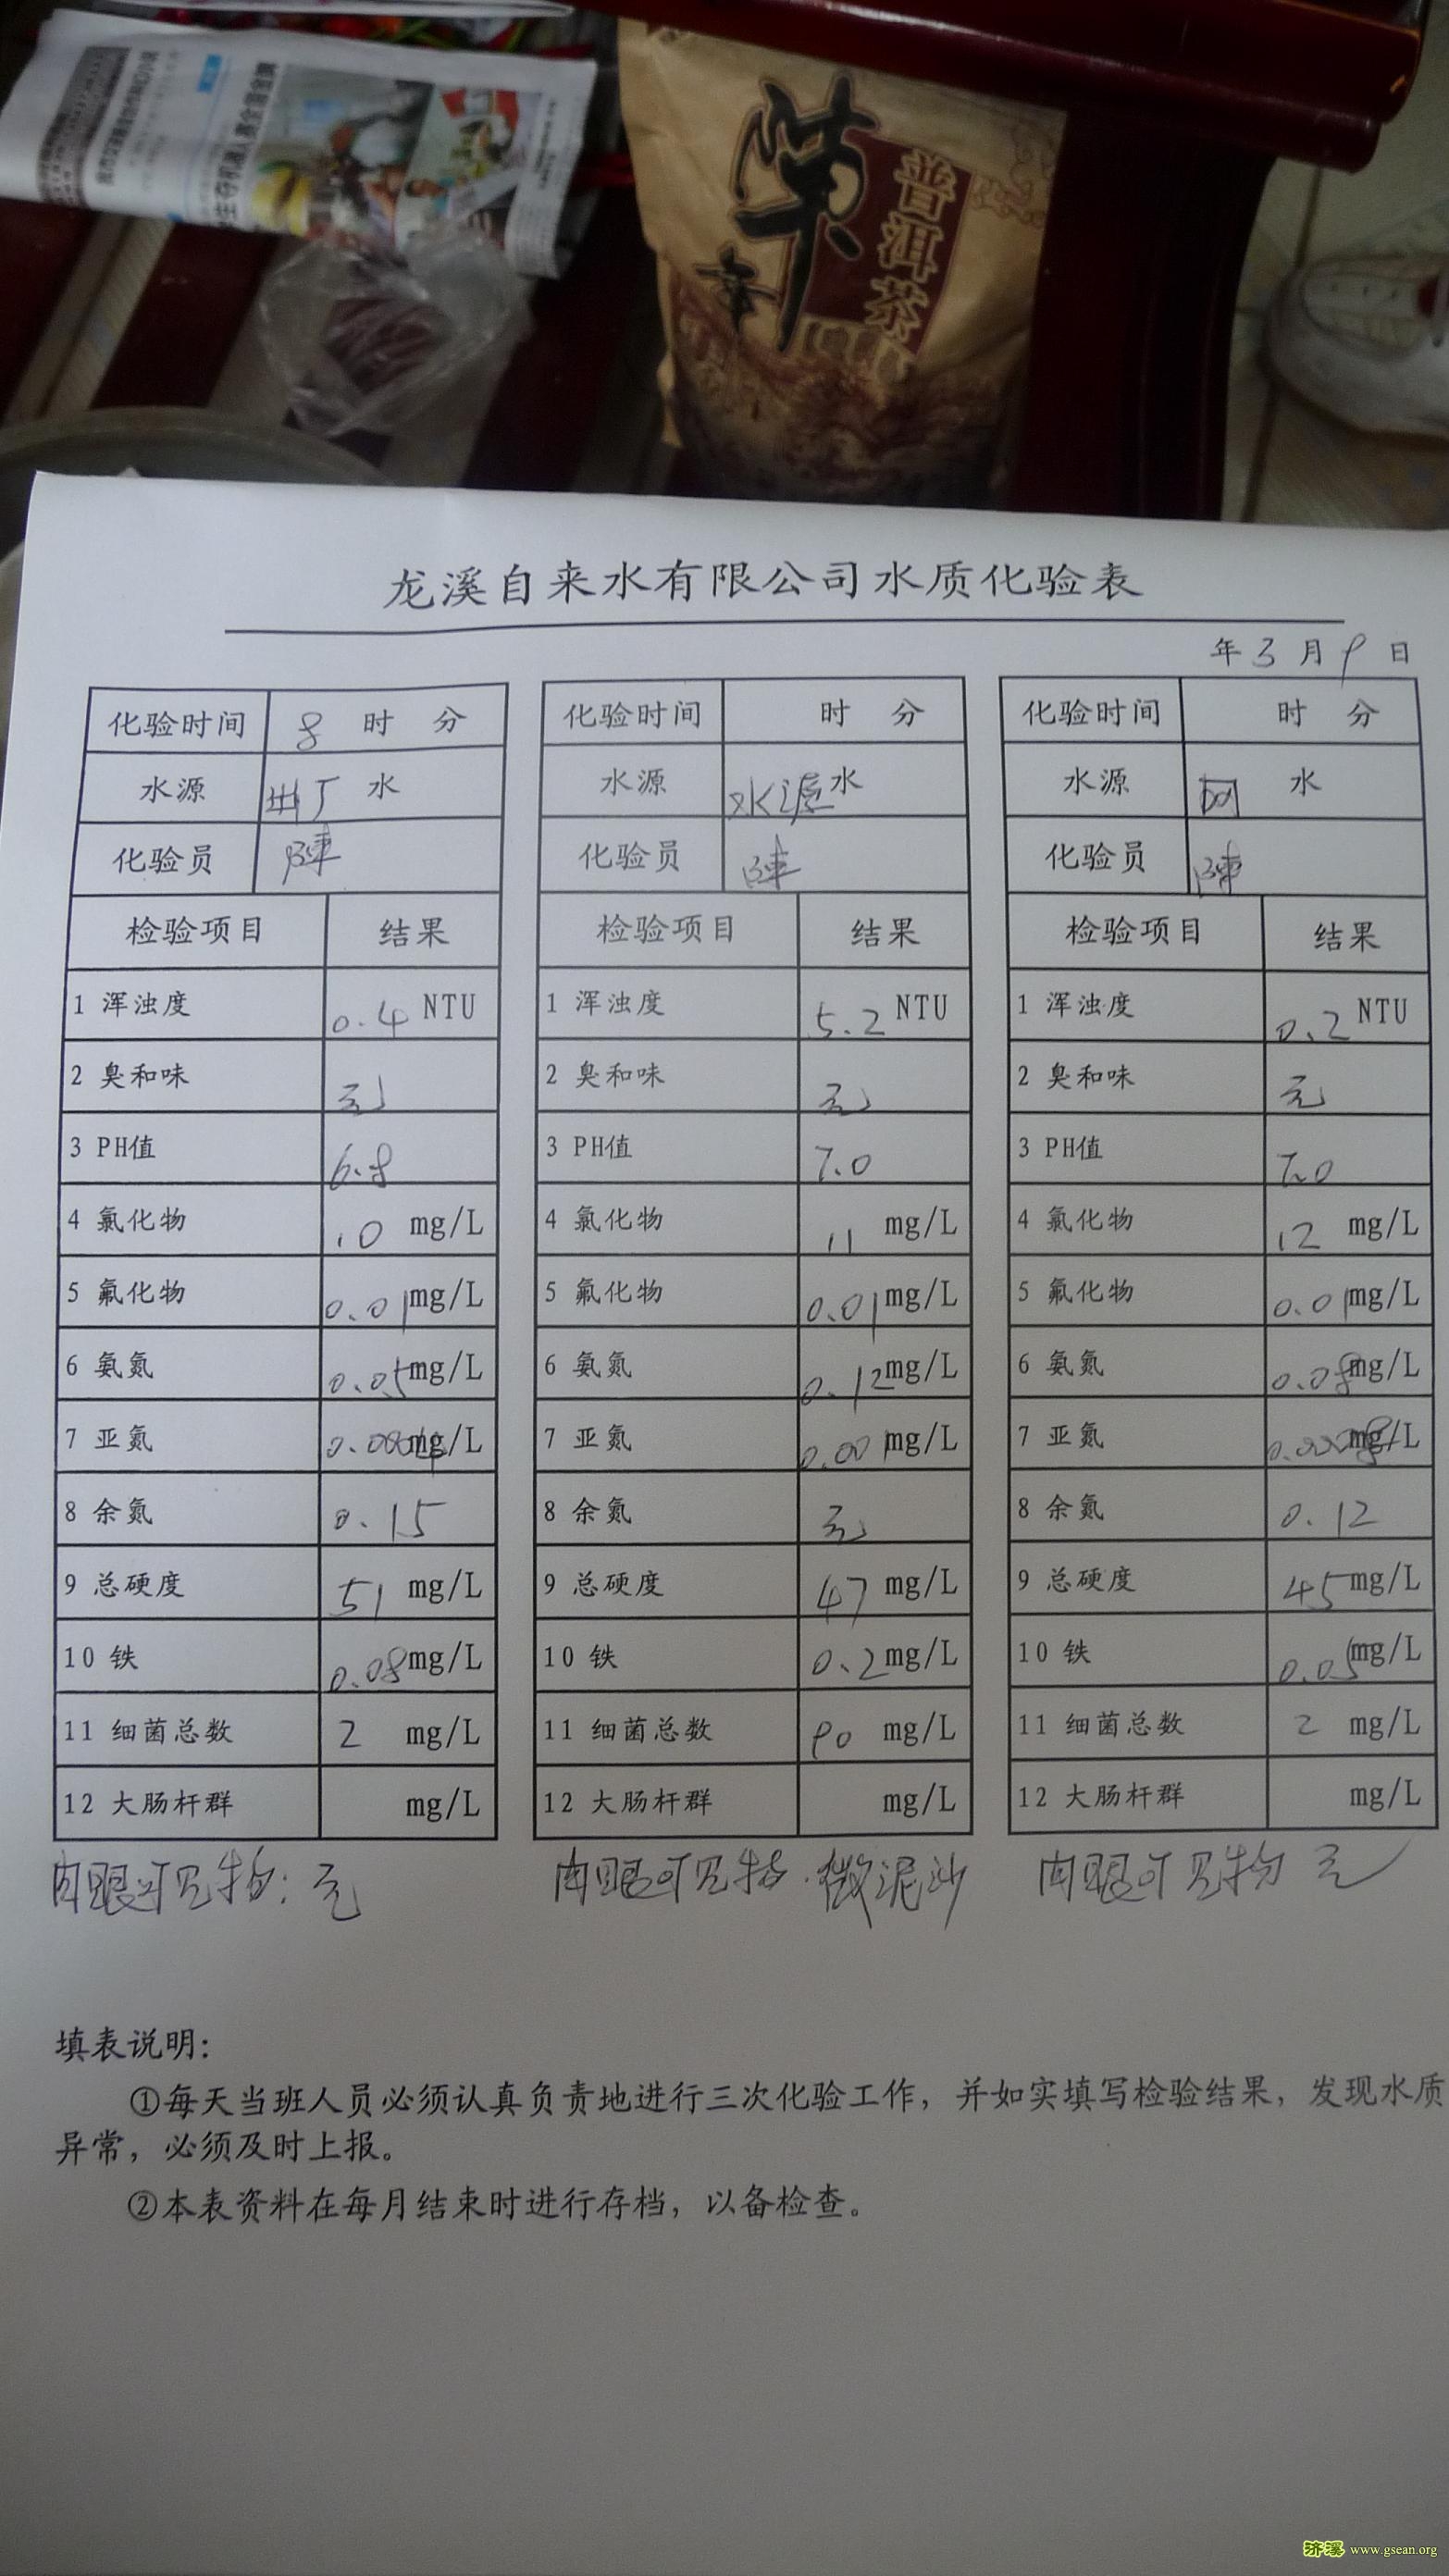 陈年
普洱茶
龙溪自来水有限公司水质化验表
年 3 月 9 日
化验时间 8 时 分
水源 出厂 水
化验员 陳
检验项目 结果
1 浑浊度 0.4 NTU
2 臭和味 无
3 PH值 6.8
4 氯化物 10 mg/L
5 氟化物 0.01 mg/L
6 氨氮 0.05 mg/L
7 亚氮 mg/L
8 余氮 0.15
9 总硬度 51 mg/L
10 铁 0.08 mg/L
11 细菌总数 2 mg/L
12 大肠杆群 mg/L
肉眼可见物: 无
化验时间 时 分
水源 水源 水
化验员 陳
检验项目 结果
1 浑浊度 5.2 NTU
2 臭和味 无
3 PH值 7.0
4 氯化物 11 mg/L
5 氟化物 0.01 mg/L
6 氨氮 0.12 mg/L
7 亚氮 0.001 mg/L
8 余氮 无
9 总硬度 47 mg/L
10 铁 0.2 mg/L
11 细菌总数 90 mg/L
12 大肠杆群 mg/L
肉眼可见物·微泥沙
化验时间 时 分
水源 网 水
化验员 陳
检验项目 结果
1 浑浊度 0.2 NTU
2 臭和味 无
3 PH值 7.0
4 氯化物 12 mg/L
5 氟化物 0.01 mg/L
6 氨氮 0.08 mg/L
7 亚氮 mg/L
8 余氮 0.12
9 总硬度 45 mg/L
10 铁 0.05 mg/L
11 细菌总数 2 mg/L
12 大肠杆群 mg/L
肉眼可见物 无
填表说明:
①每天当班人员必须认真负责地进行三次化验工作，并如实填写检验结果，发现水质
异常，必须及时上报。
②本表资料在每月结束时进行存档，以备检查。
济溪 www.gsean.org